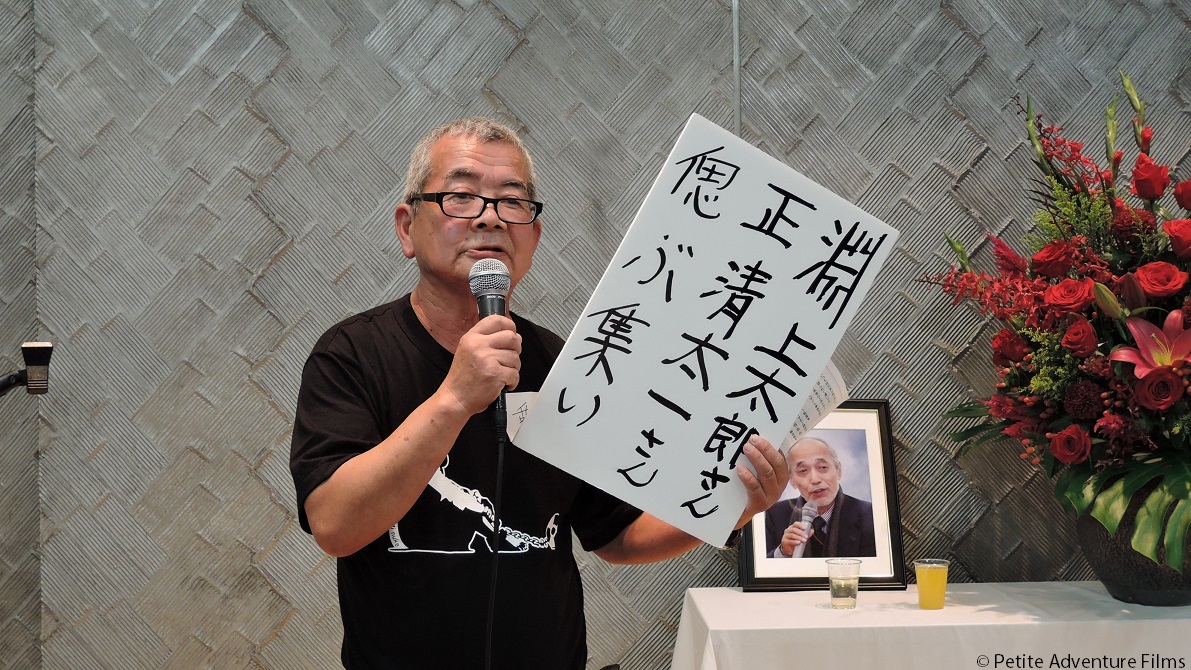 淵上太郎さん
正清太一さん
偲ぶ集い
© Petite Adventure Films